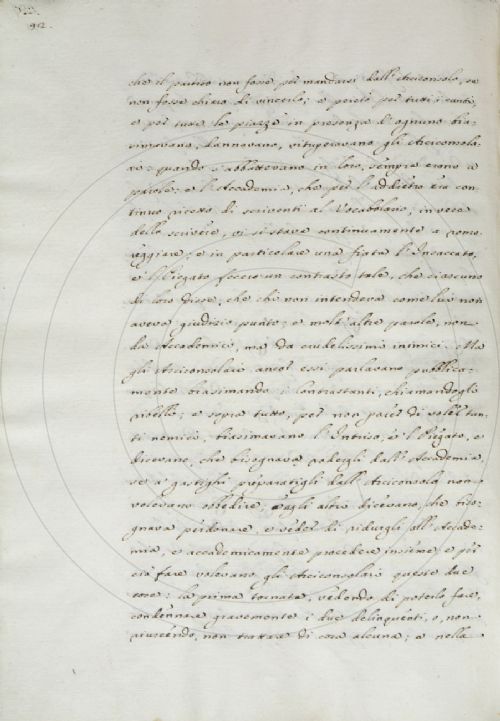 92.
che il partito non fosse per mandarsi dall'Arciconsolo, se
non fosse chiaro di vincerlo; e perciò per tutti i canti,
e per tutte le piazze in presenza d'ognuno bia-
simavano, dannavano, vituperavano gli Arciconsola-
ri: quando s'abbattevano in loro, sempre erano a
parole: e l'Accademia, che per l'addietro era con-
tinuo ricetto di scriventi al Vocabolario; in vece
dello scrivere, vi si stave continuamente a romo-
reggiare; e in particolare una fiata l'Incaccato,
e l'Riegato fecero un contrasto tale, che ciascuno
di loro disse, che chi non intendeva come lui non
aveva giudizio punto; e molt'altre parole, non
da Accademici, ma da crudelissimi inimici. Ma
gli Arciconsolari ancor essi parlavano pubblica-
mente biasimando i contrastanti, chiamandogli
ribelli; e sopra tutto, per non parer di voler tan-
ti nemici, biasimavano l'Intriso, e l'Riegato, e
dicevano, che bisognava radergli dall'Accademia
se a' gastighi preparatigli dall'Arciconsolo non
volevano obbedire; e gli altri dicevano, che biso-
gnava perdonare, e veder di ridurgli all'Accade-
mia, e accademicamente procedere insieme; e per
ciò fare volevano gli Arciconsolari queste due
cose: la prima tornata, vedendo di poterlo fare,
condennare gravemente i due delinquenti, o, non
riuscendo, non trattare di cosa alcuna; e nella